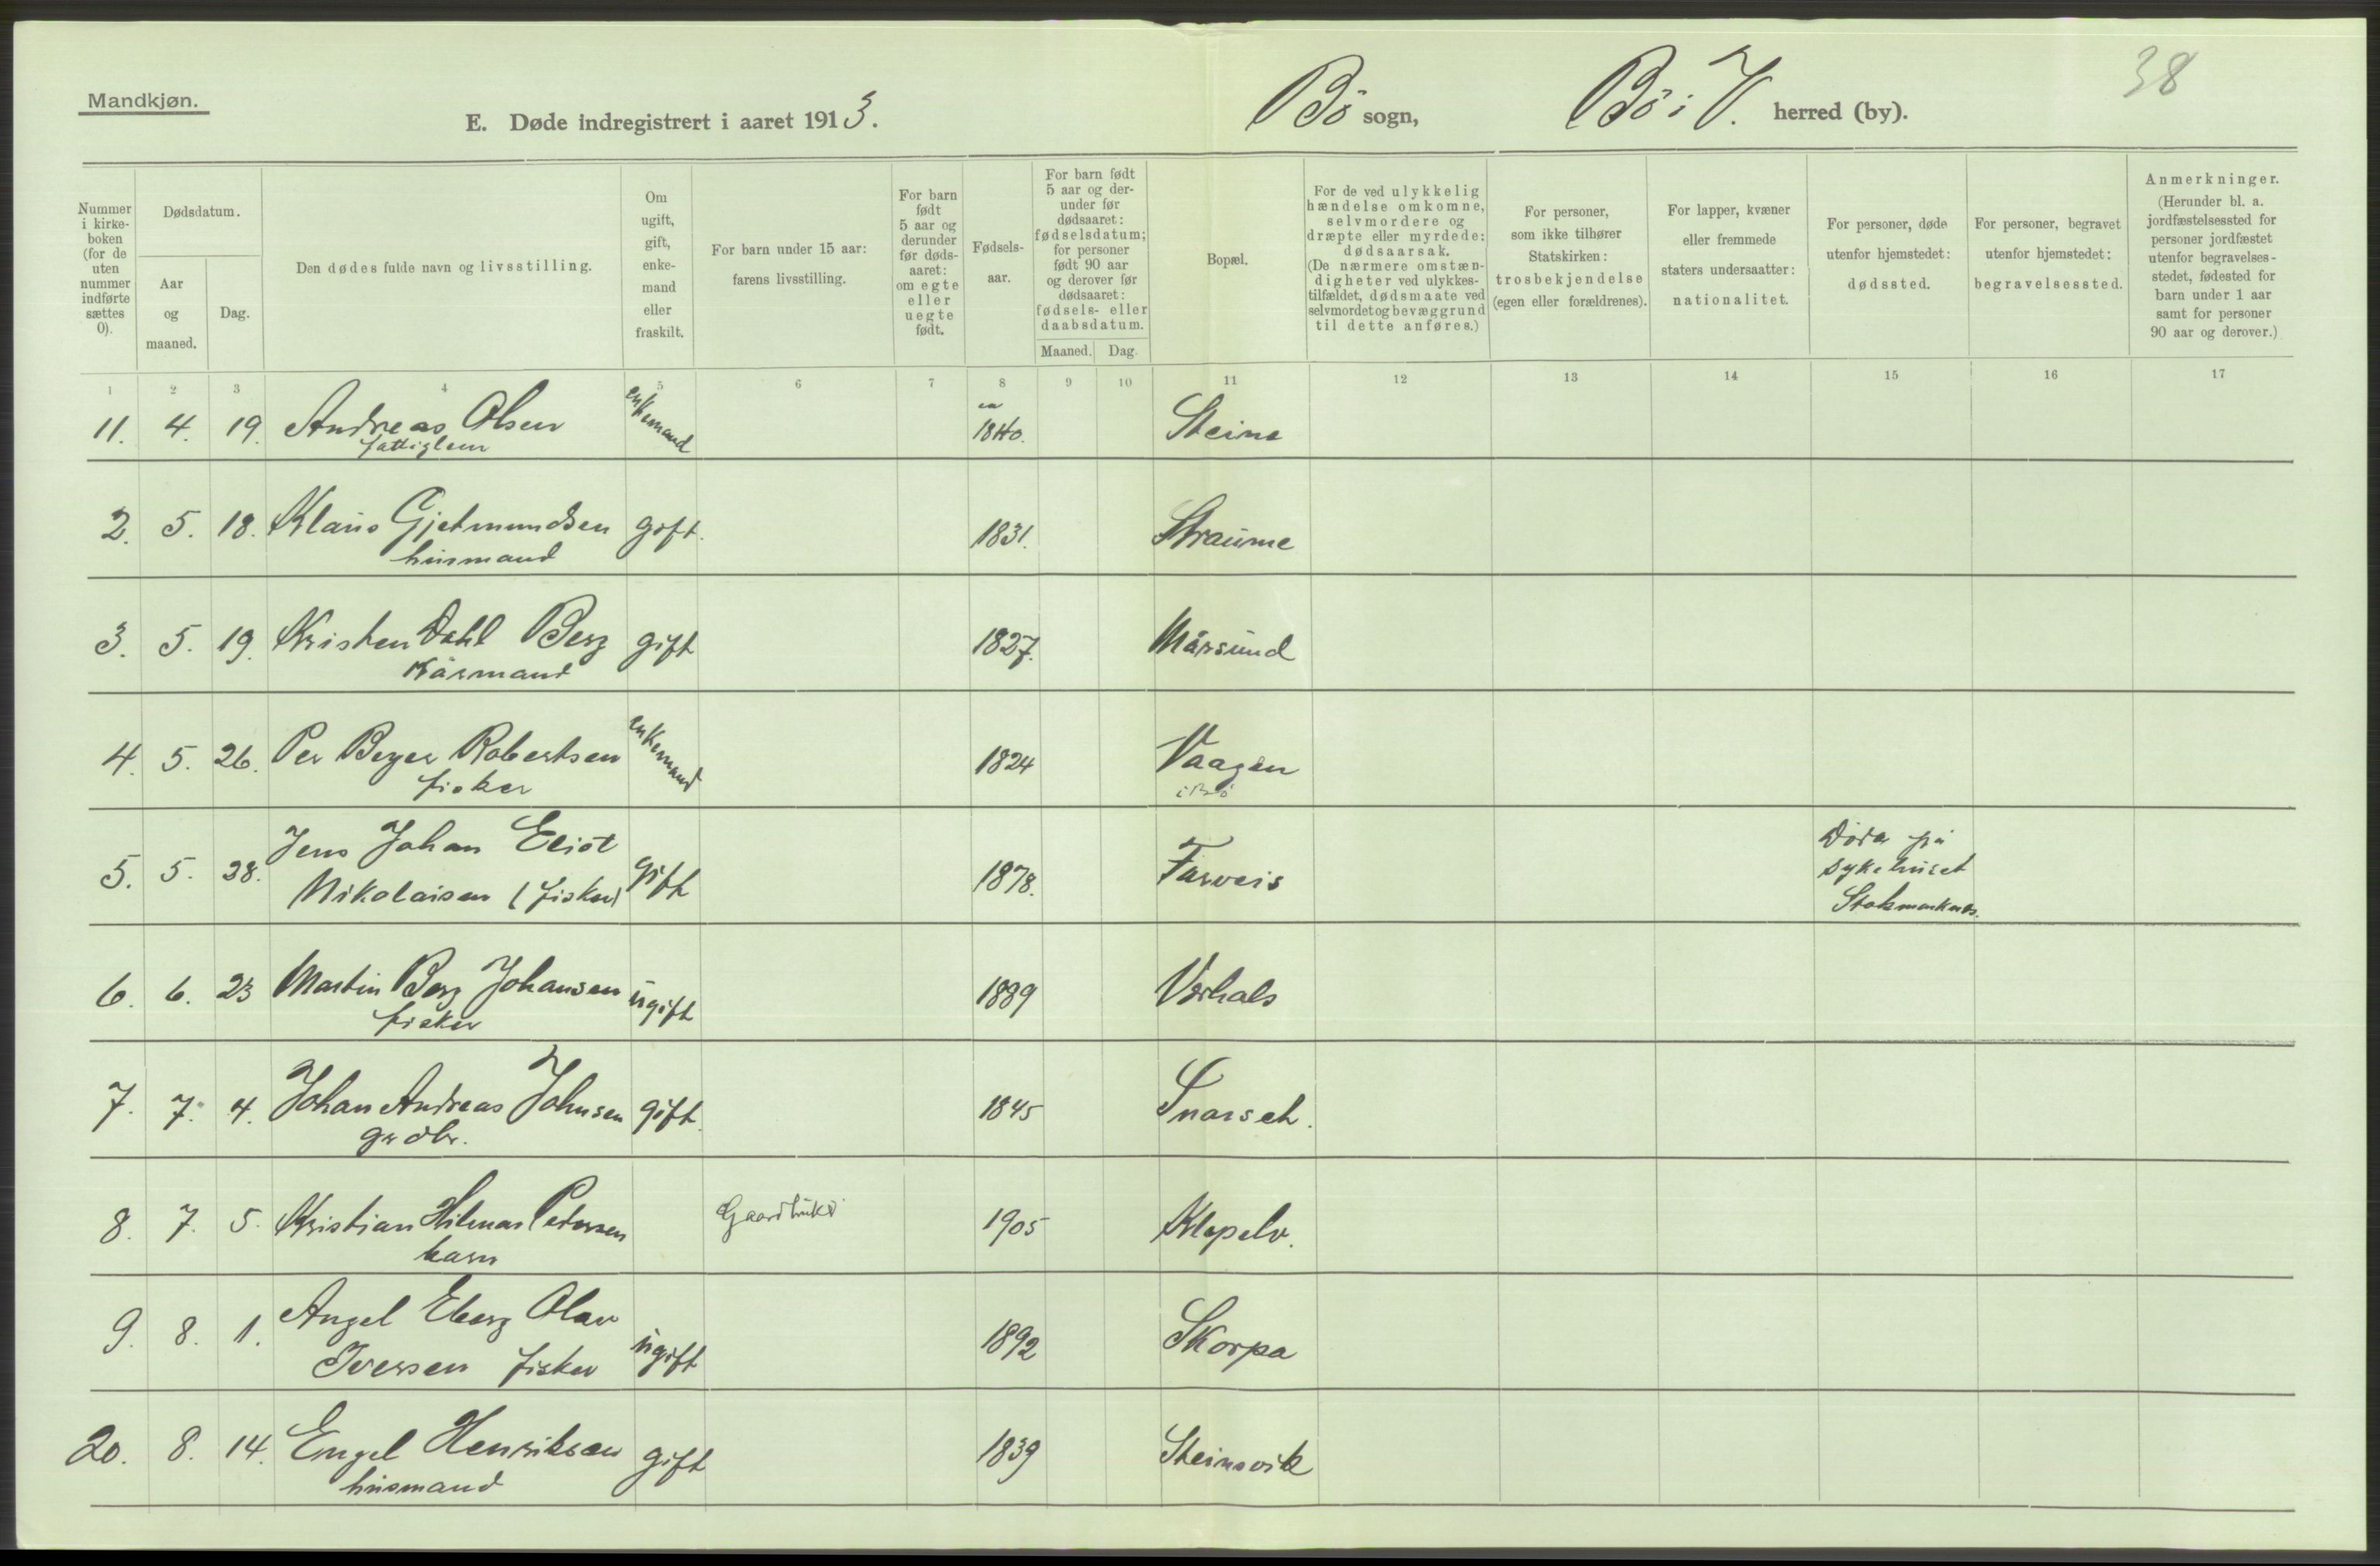 38
Mandkjøn.
E. Døde indregistrert i aaret 1913. Bö sogn, Bö i V. herred (by).
Nummer i kirke-boken (for de uten nummer indførte sættes 0).
Dødsdatum.
Aar og maaned.
Dag.
Den dødes fulde navn og livsstilling.
Om ugift, gift, enke-mand eller fraskilt.
For barn under 15 aar: farens livsstilling.
For barn født 5 aar og derunder før døds-aaret: om egte eller uegte født.
Fødsels-aar.
For barn født 5 aar og der-under før dødsaaret: fødselsdatum; for personer født 90 aar og derover før dødsaaret: fødsels- eller daabsdatum.
Maaned. Dag.
Bopæl.
For de ved ulykkelig hændelse omkomne, selvmordere og dræpte eller myrdede: dødsaarsak. (De nærmere omstæn-digheter ved ulykkes-tilfældet, dødsmaate ved selvmordet og bevæggrund til dette anføres.)
For personer, som ikke tilhører Statskirken: trosbekjendelse (egen eller forældrenes).
For lapper, kvæner eller fremmede staters undersaatter: nationalitet.
For personer, døde utenfor hjemstedet: dødssted.
For personer, begravet utenfor hjemstedet: begravelsessted.
Anmerkninger. (Herunder bl. a. jordfæstelsessted for personer jordfæstet utenfor begravelses-stedet, fødested for barn under 1 aar samt for personer 90 aar og derover.)
1 2 3 4 5 6 7 8 9 10 11 12 13 14 15 16 17
11. 4. 19. Andreas Olsen enkemand ca 1840. Steine
fattiglem
2. 5. 18. Klaus Gjetmundsen gift. 1831. Straume
husmand
3. 5. 19. Kristen Dahl Berg gift 1827. Mårsund
Kårmand
4. 5. 26. Per Beyer Robertsen enkemand 1824 Vaagen
fisker i Bö
5. 5. 28. Jens Johan Eliot gift 1878. Farveis Döde på
Nikolaisen (fisker) sykehuset
Stokmarknes.
6. 6. 23 Martin Berg Johansen ugift 1889 Verhals
fisker
7. 7. 4. Johan Andreas Johnsen gift. 1845 Snarset.
grdbr.
8. 7. 5. Kristian Hilmar Petersen Gaardbruker 1905 Klepelv.
barn
9. 8. 1. Angel Eberg Olav ugift 1892 Skorpa
Iversen fisker
20. 8. 14. Engel Henriksen gift 1839 Steinsvik
husmand